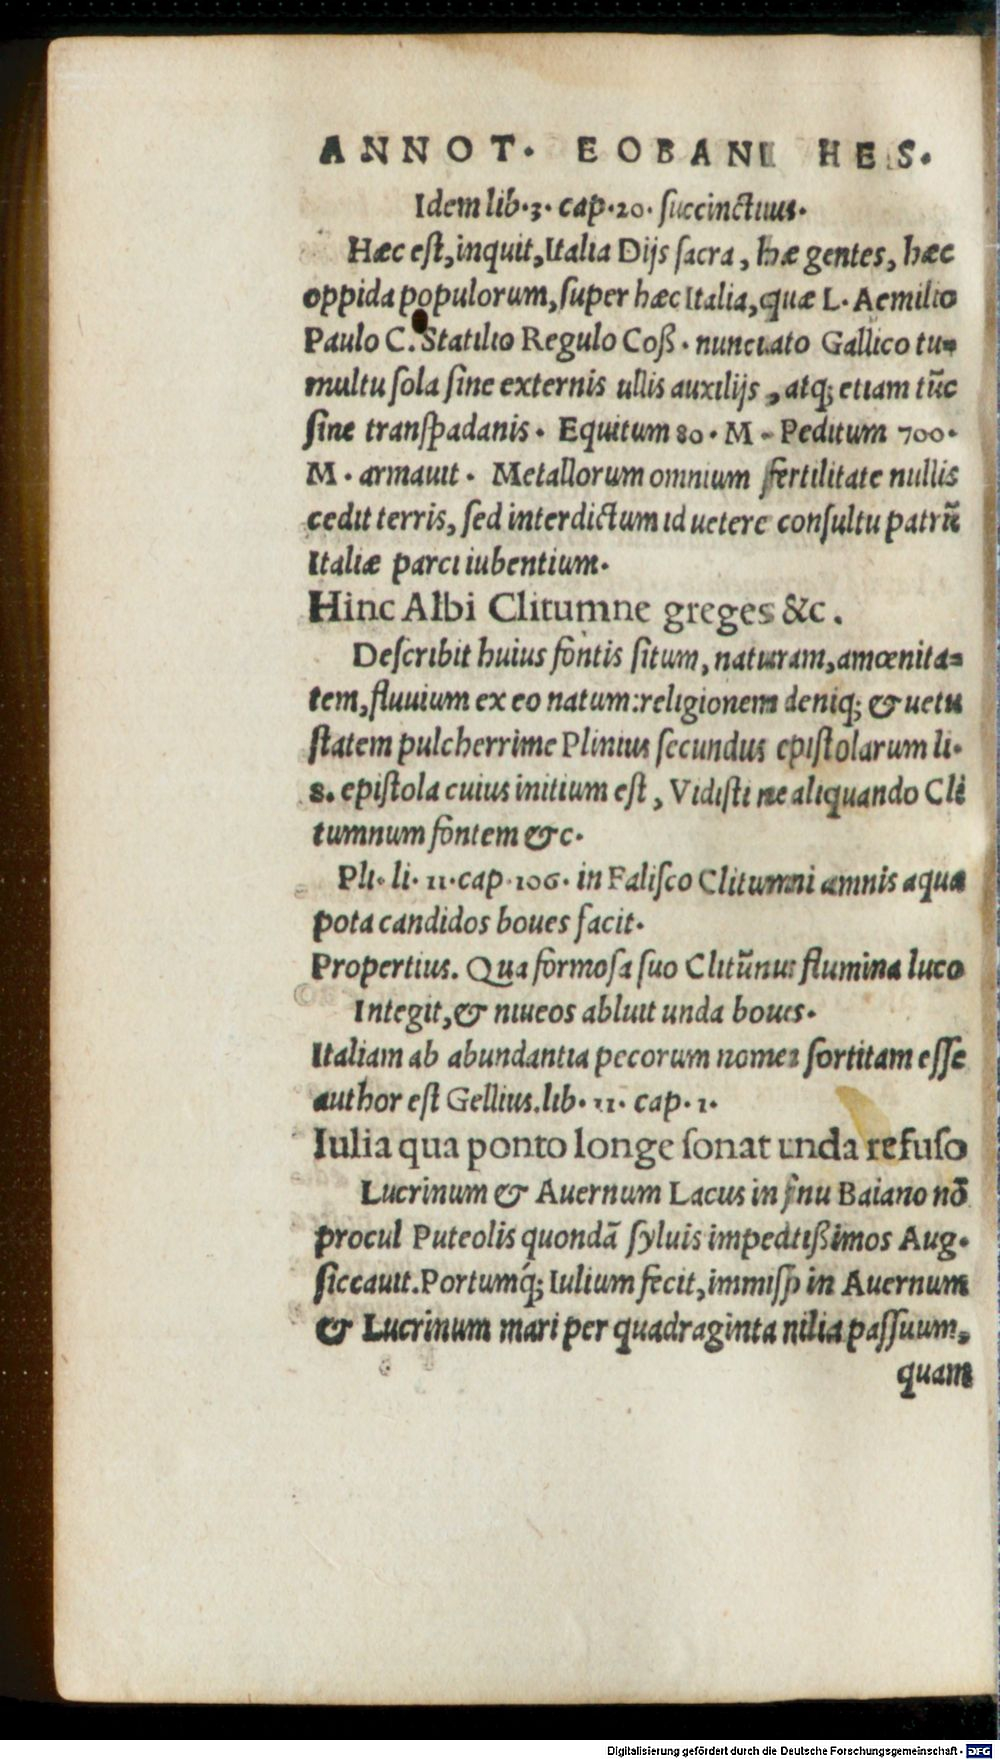 ANNOT. EOBANI HES.
Idem lib.3. cap.20. ſuccinctius.
Hæc eſt, inquit, Italia Dijs ſacra, hæ gentes, hæc
oppida populorum, ſuper hæc Italia, quæ L. Aemilio
Paulo C. Statilio Regulo Coß. nunciato Gallico tu-
multu ſola ſine externis ullis auxilijs, atq; etiam tūc
ſine tranſpadanis. Equitum 80. M. Peditum 700.
M. armauit. Metallorum omnium fertilitate nullis
cedit terris, ſed interdictum id uetere conſultu patrū
Italiæ parci iubentium.
Hinc Albi Clitumne greges &c.
Deſcribit huius fontis ſitum, naturam, amœnita-
tem, fluuium ex eo natum: religionem deniq; & uetu
ſtatem pulcherrime Plinius ſecundus epiſtolarum li.
8. epiſtola cuius initium eſt, Vidiſti ne aliquando Cli
tumnum fontem &c.
Pli. li. 11. cap. 106. in Faliſco Clitumni amnis aqua
pota candidos boues facit.
Propertius. Qua formoſa ſuo Clitūnus flumina luco
Integit, & niueos abluit unda boues.
Italiam ab abundantia pecorum nomen ſortitam eſſe
author eſt Gellius. lib. 11. cap. 1.
Iulia qua ponto longe ſonat unda refuſo
Lucrinum & Auernum Lacus in ſinu Baiano nō
procul Puteolis quondā ſyluis impeditißimos Aug.
ſiccauit. Portumq́; Iulium fecit, immiſſo in Auernum
& Lucrinum mari per quadraginta milia paſſuum,
quam
Digitalisierung gefördert durch die Deutsche Forschungsgemeinschaft - DFG